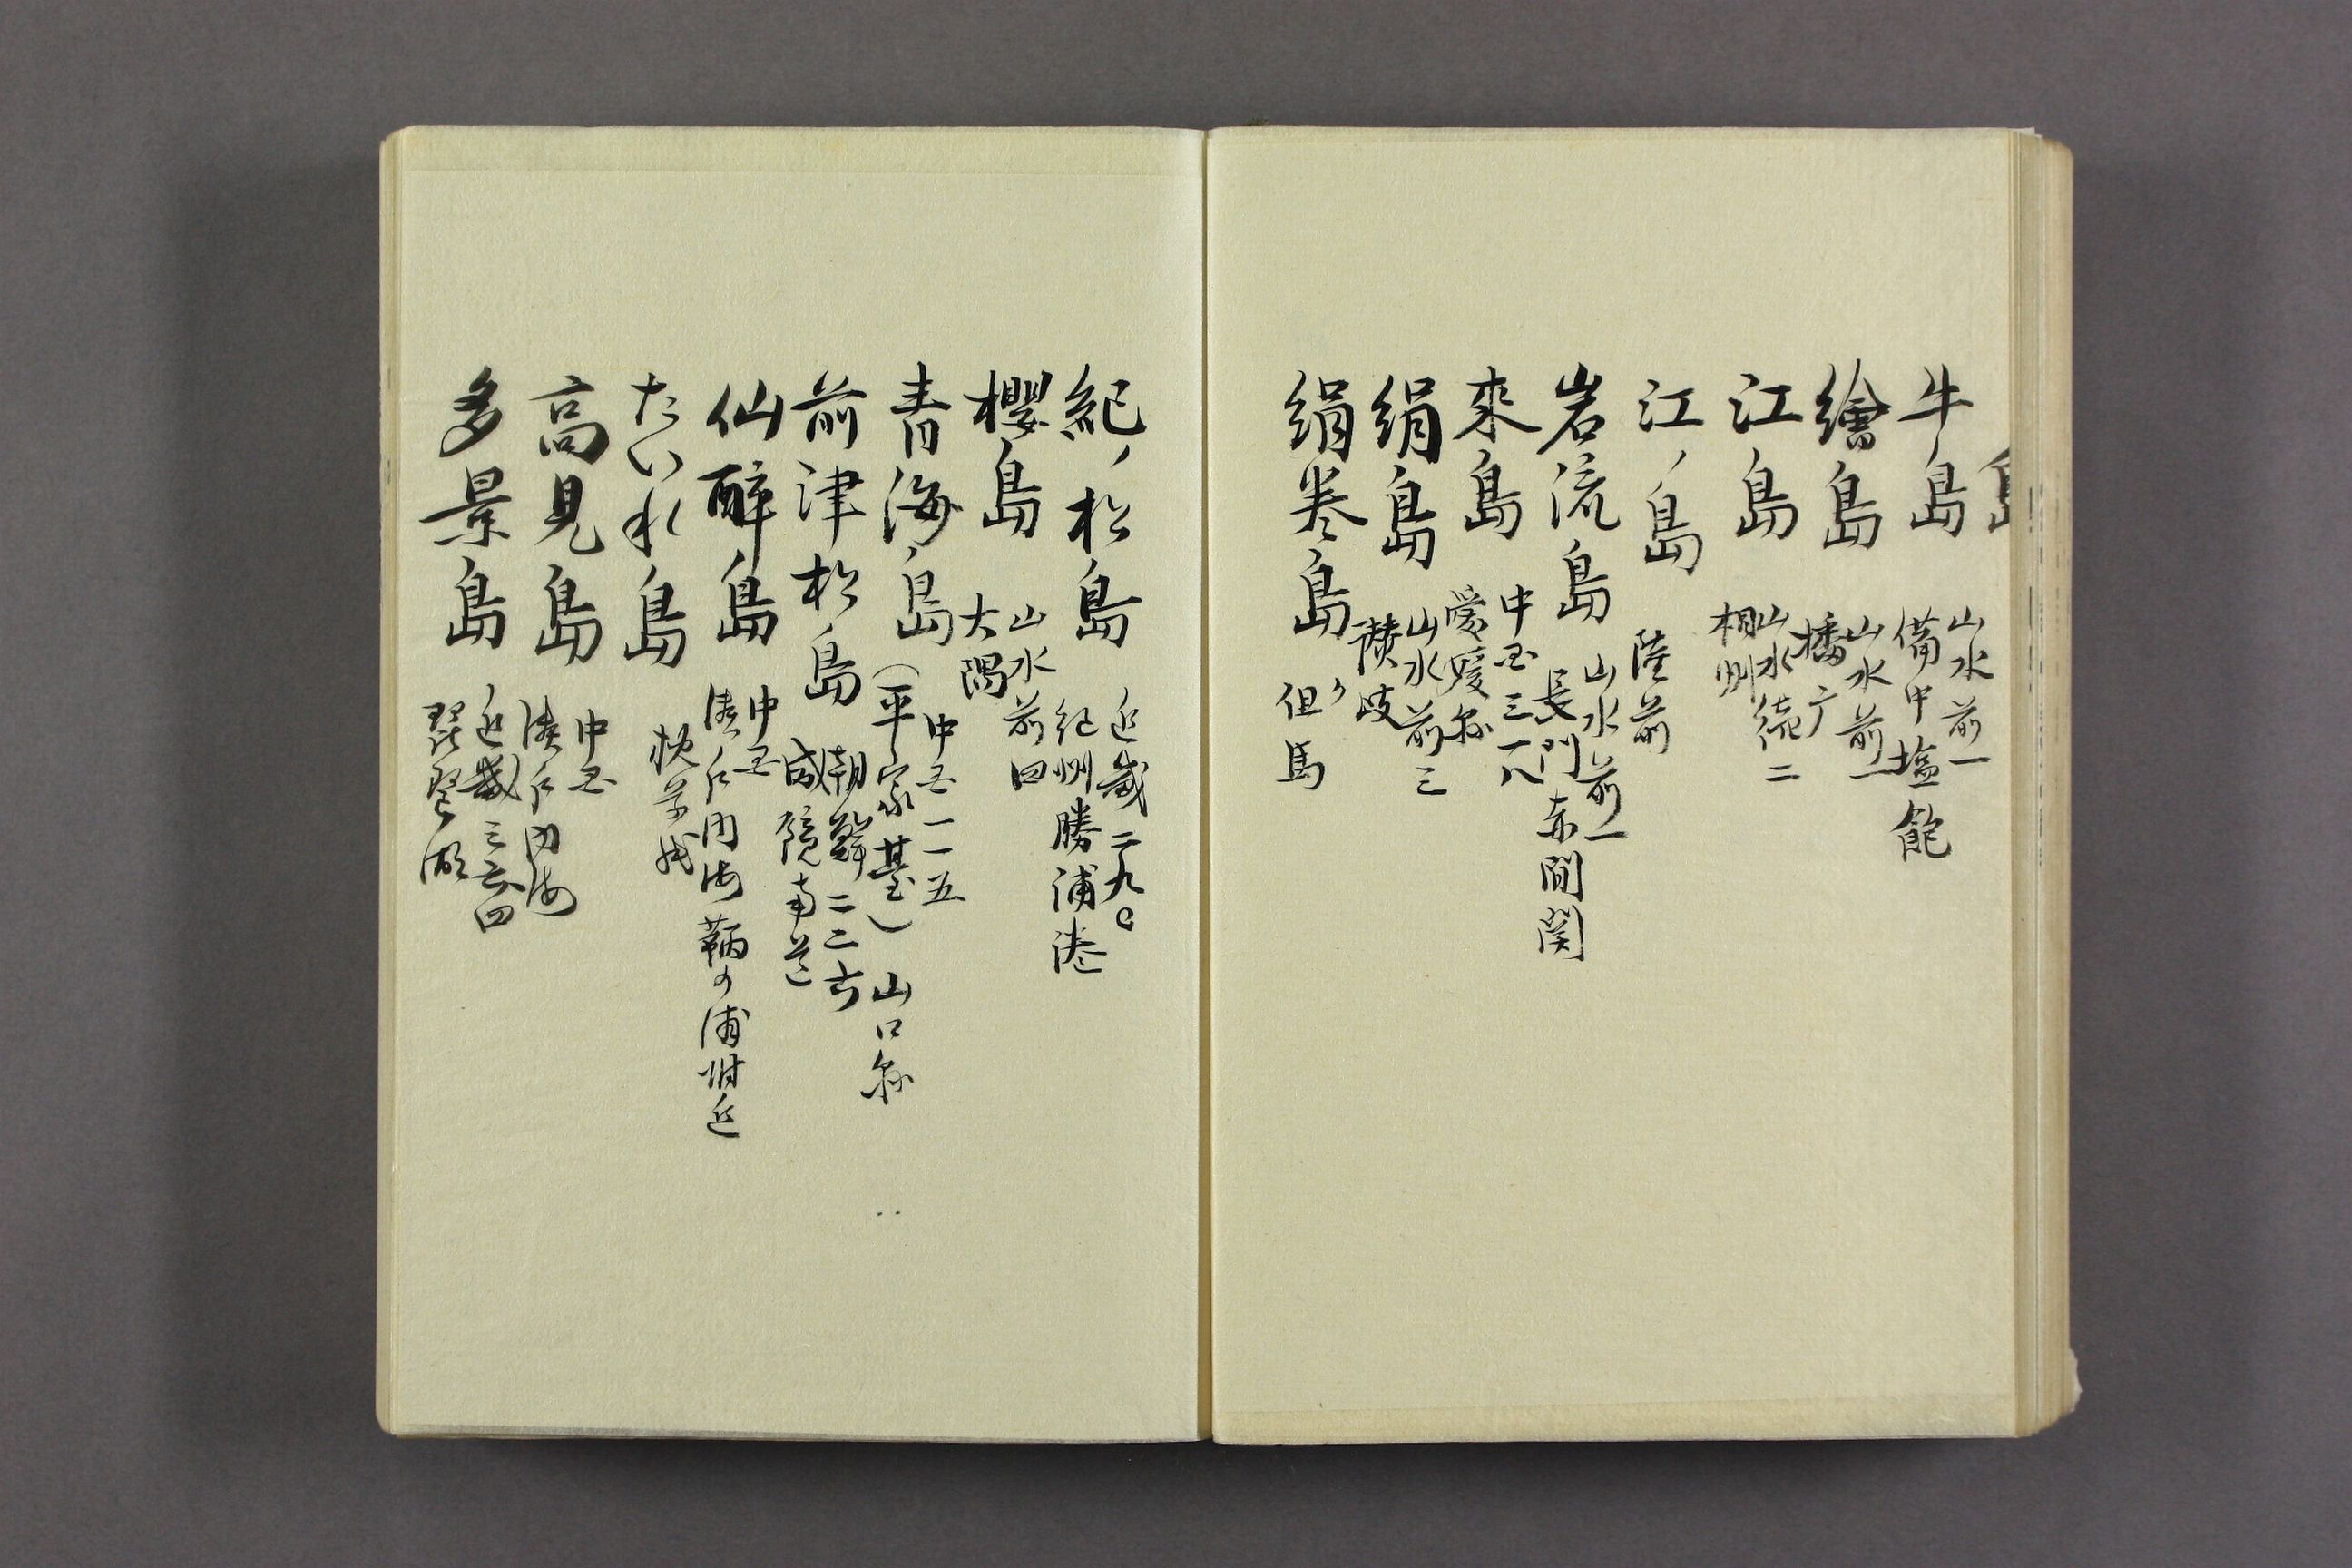 島
牛島
山水前一
備中塩飽
繪島
山水前一
播广
江島
山水続二
相州
江ノ島
陸前
岩流島
山水前一
長門赤間関
來島
中国三一八
愛媛縣
絹島
山水前三
讃岐
絹巻島
〃但馬
紀ノ松島
近畿二九〇
紀州勝浦港
櫻島
山水前四
大隅
青海島
中国一一五
(平家臺)山口縣
前津松島
朝鮮二二六
咸鏡南道
仙醉島
中国
瀬戸内海鞆の浦附近
たいれ島
高見島
中国
瀬戸内海
多景島
近畿三六四
琵琶湖